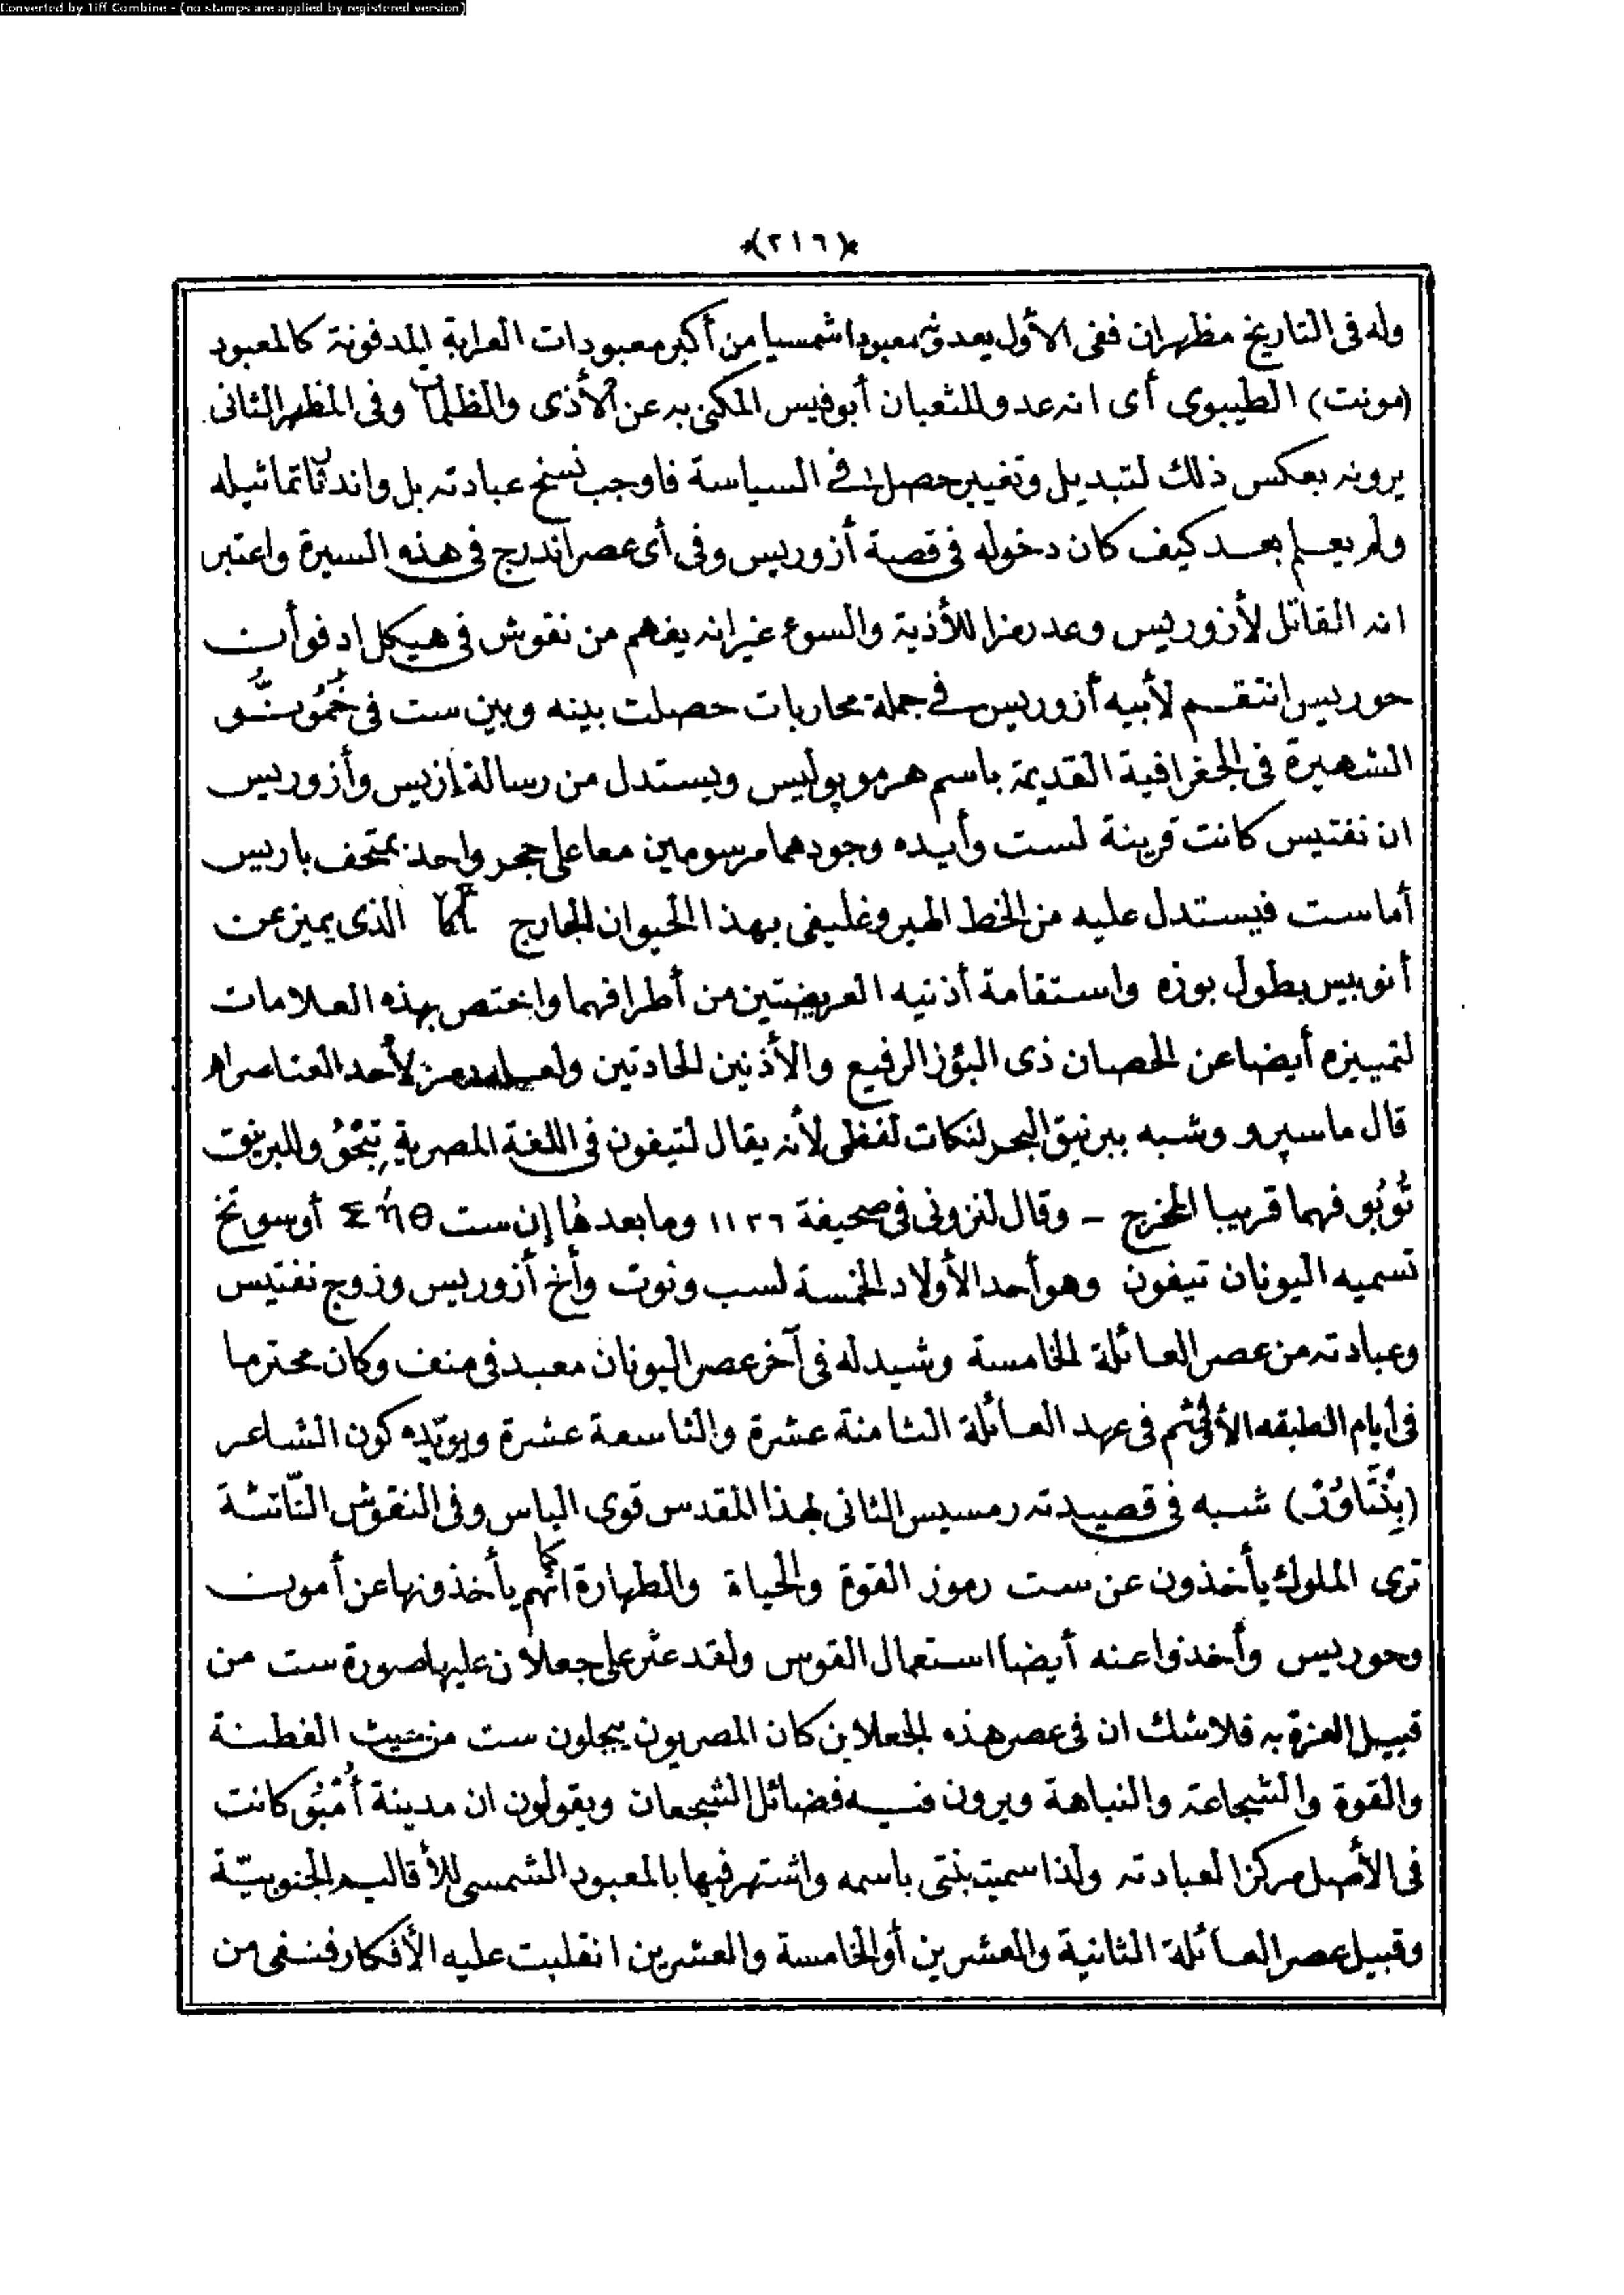 Converted by Tiff Combine - (no stamps are applied by registered version)
*(٢١٦)*
وله فى التاريخ مظهران ففى الأول يعدونه معبودا شمسيا من أكبر معبودات العرابة المدفونة كالمعبود
(مونت) الطيبوى أى انه عدو للثعبان أبوفيس المكنى به عن الأذى والظلمات وفى المظهر الثانى
يرونه بعكس ذلك لتبديل وتغيير حصل فى السياسة فاوجب نسخ عبادته بل واندثار تماثيله
ولم يعلم بعد كيف كان دخوله فى قصة أزوريس وفى أى عصر اندرج فى هذه السيرة واعتبر
انه القاتل لأزوريس وعد رمزا للأذية والسوء غير انه يفهم من نقوش فى هيكل ادفو أن
حوريس انتقم لأبيه أزوريس فى جملة محاربات حصلت بينه وبين ست فى خُمُونُو
الشهيرة فى الجغرافية القديمة باسم هرموپوليس ويستدل من رسالة إزيس وأزوريس
ان نفتيس كانت قرينة لست وأيده وجودهما مرسومين معا على حجر واحد بمتحف باريس
أما ست فيستدل عليه من الخط الهيروغليفى بهذا الحيوان الجارح الذى يميز عن
أنوبيس بطول بوزه واستقامة أذنيه العريضتين من أطرافهما واختص بهذه العلامات
لتمييزه أيضا عن الحصان ذى البؤز الرفيع والأذنين الحادتين ولعله رمز لأحد العناصر اه
قال ماسپرو وشبه ببرنيق البحر لنكات لفظى لأنه يقال لتيفون فى اللغة المصرية تِبْحُو وللبرنيق
تُوبُو فهما قريبا المخرج – وقال لنزونى فى صحيفة ١١٢٦ وما بعدها إن ست Σηθ أو سوتخ
تسميه اليونان تيفون وهو أحد الأولاد الخمسة لسب ونوت وأخ أزوريس وزوج نفتيس
وعبادته من عصر العائلة الخامسة وشيد له فى آخر عصر اليونان معبد فى منف وكان محترما
فى أيام الطبقه الأولى ثم فى عهد العائلة الثامنة عشرة والتاسعة عشرة ويؤيّده كون الشاعر
(بِنْتَاوُرْ) شبه فى قصيدته رمسيس الثانى بهذا المقدس قوى الباس وفى النقوش الناتئة
ترى الملوك يأخذون عن ست رموز القوة والحياة والطهارة كما انهم يأخذونها عن أمون
وحوريس وأخذوا عنه أيضا استعمال القوس ولقد عثر على جعلان عليها صورة ست من
قبيل العزة به فلا شك ان فى عصر هذه الجعلان كان المصريون يبجلون ست من حيث الفطنة
والقوة والشجاعة والنباهة ويرون فيه فضائل الشجعان ويقولون ان مدينة أُمْبُو كانت
فى الأصل مركزا لعبادته ولذا سميت بنتى باسمه واشتهر فيها بالمعبود الشمسى للأقاليم الجنوبيّة
وقبيل عصر العائلة الثانية والعشرين أو الخامسة والعشرين انقلبت عليه الأفكار فنفى من